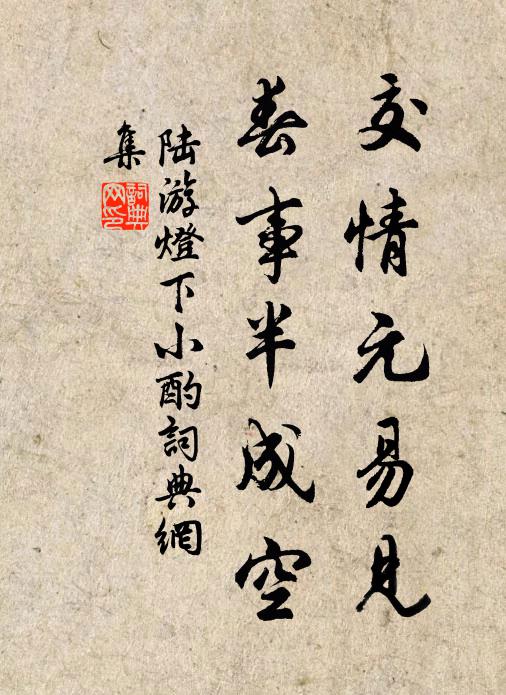 交情元易見
春事半成空
陸游燈下小酌詞典網
集
詞典
网印